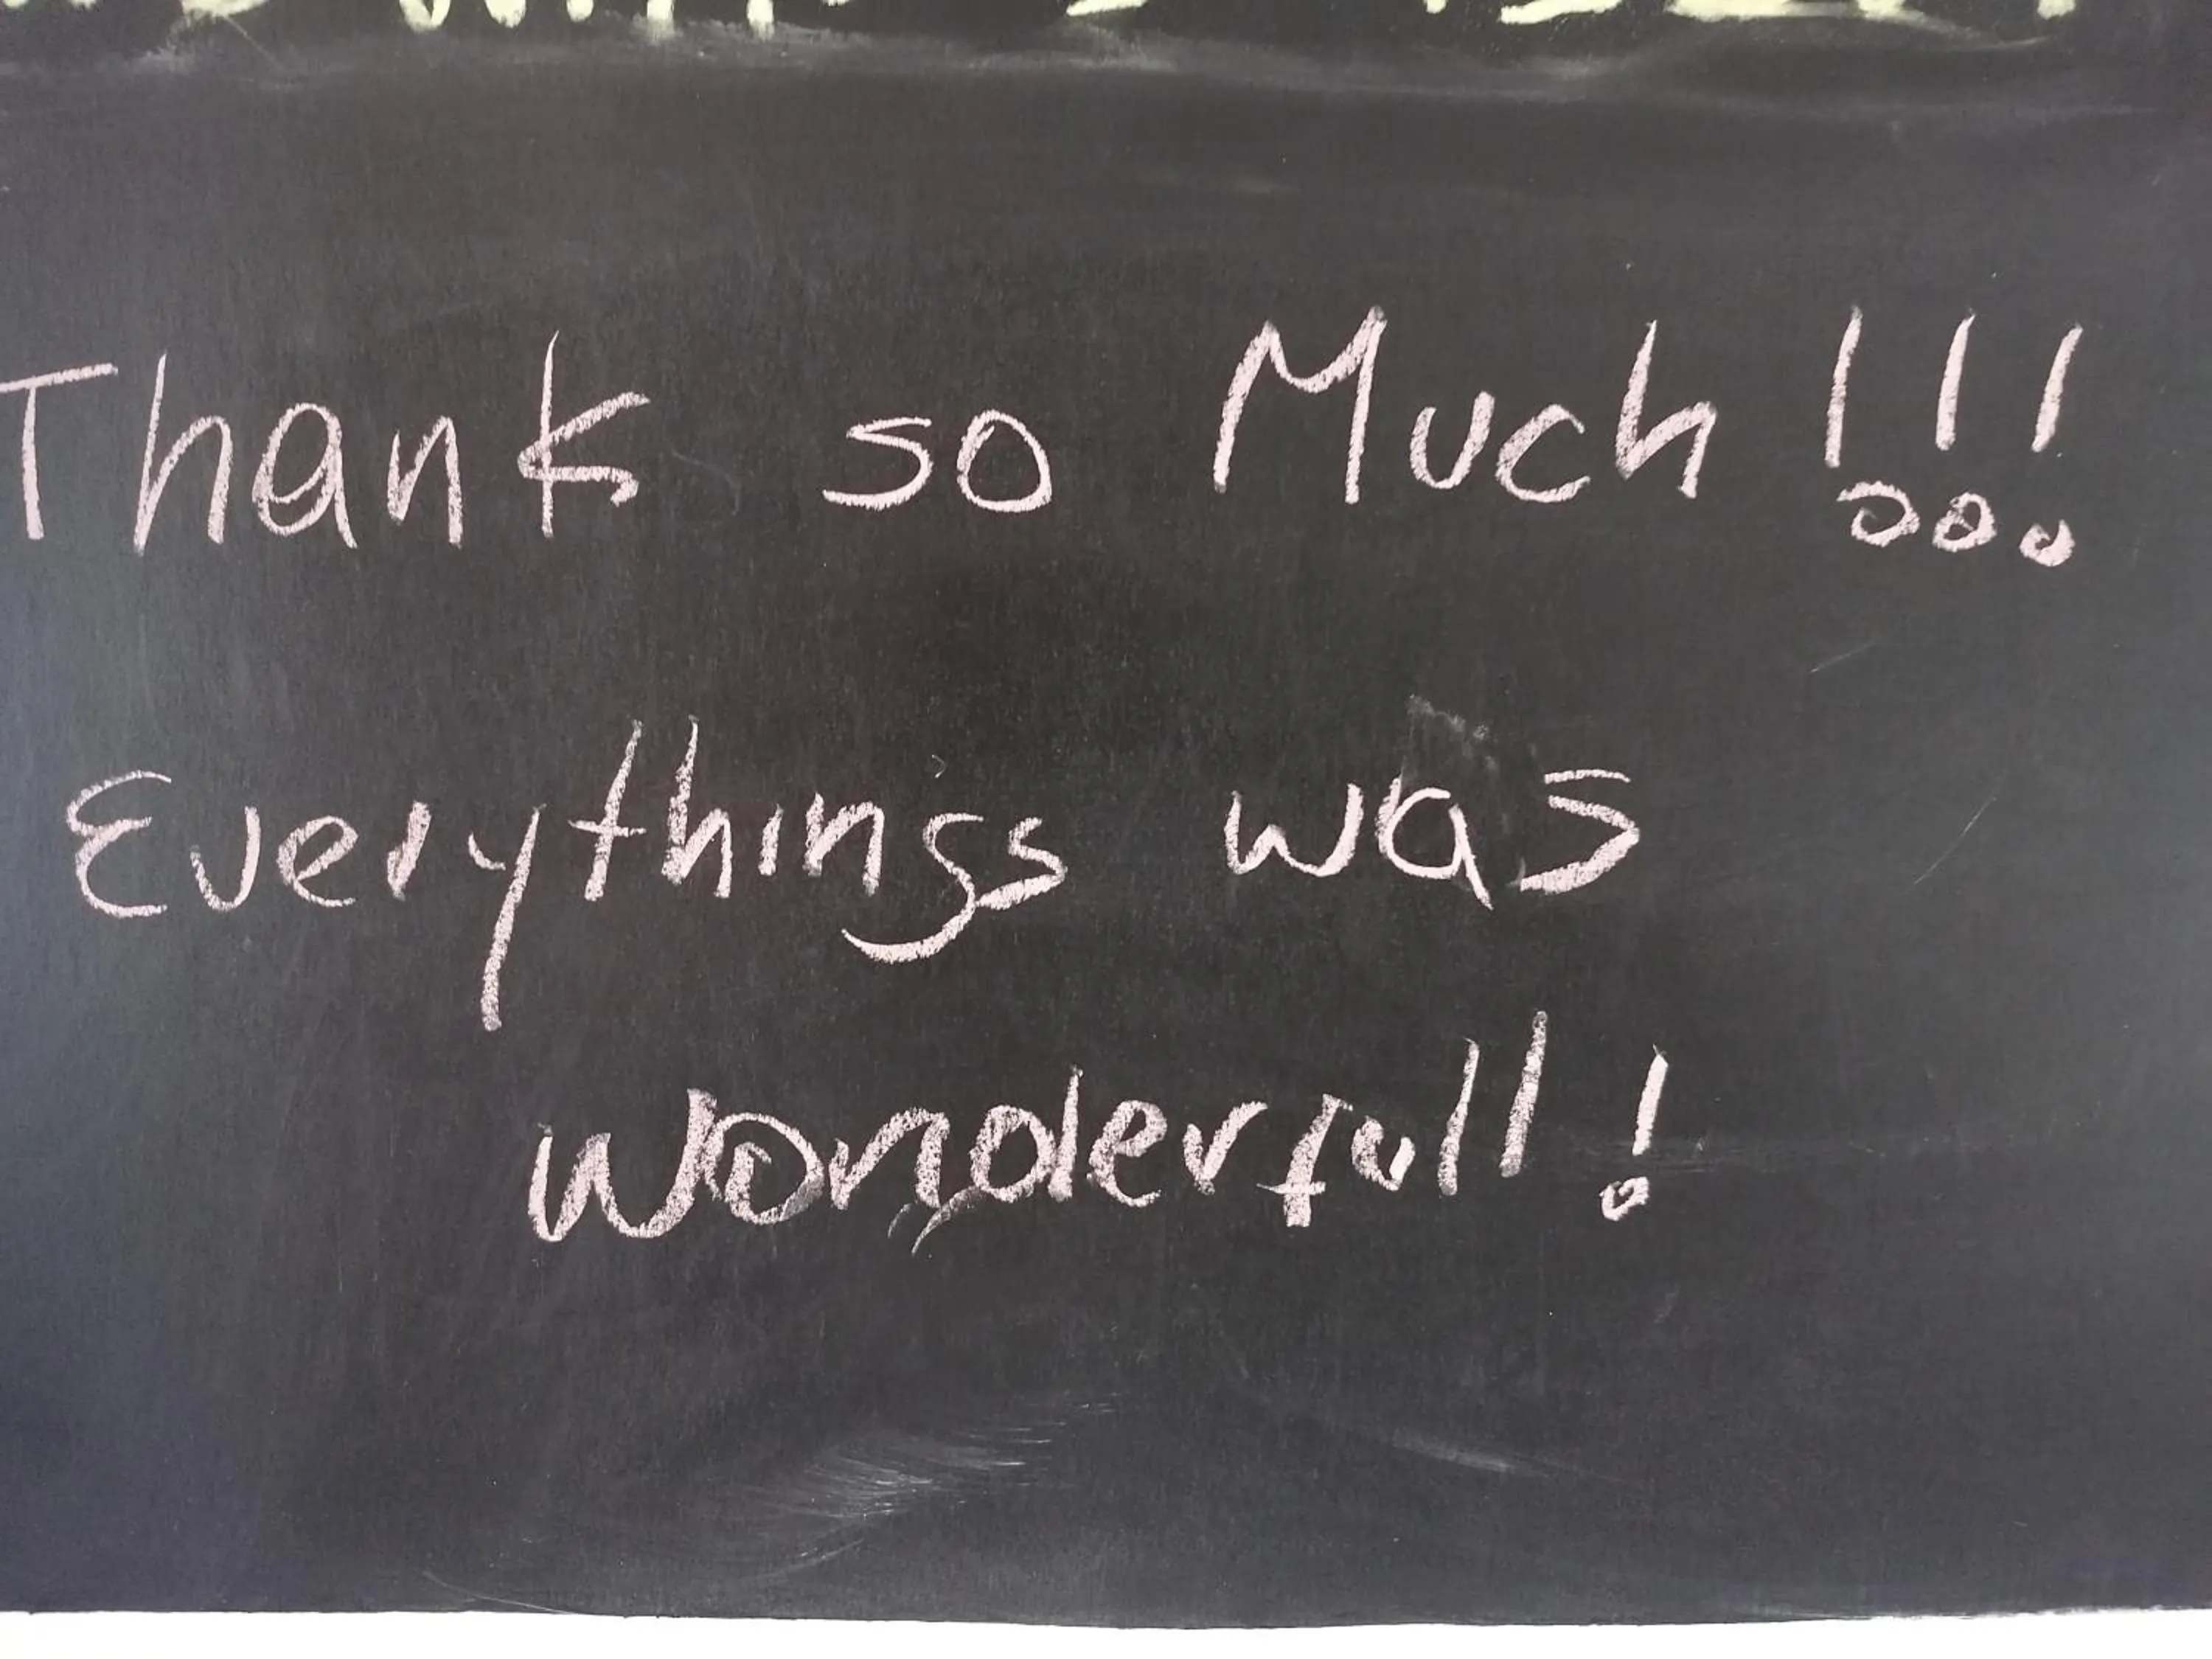 Thank so Much !!!
Everythings was
wonderfull !